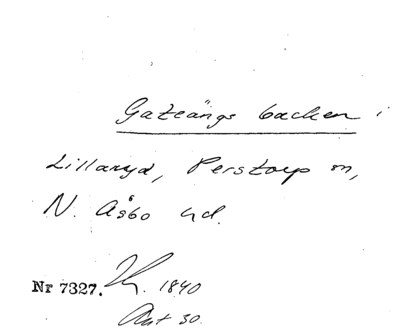 Gateängs backen i
Lillaryd, Perstorp sn,
N. Åsbo hd.
Nr 7327. 1840
Akt 30.